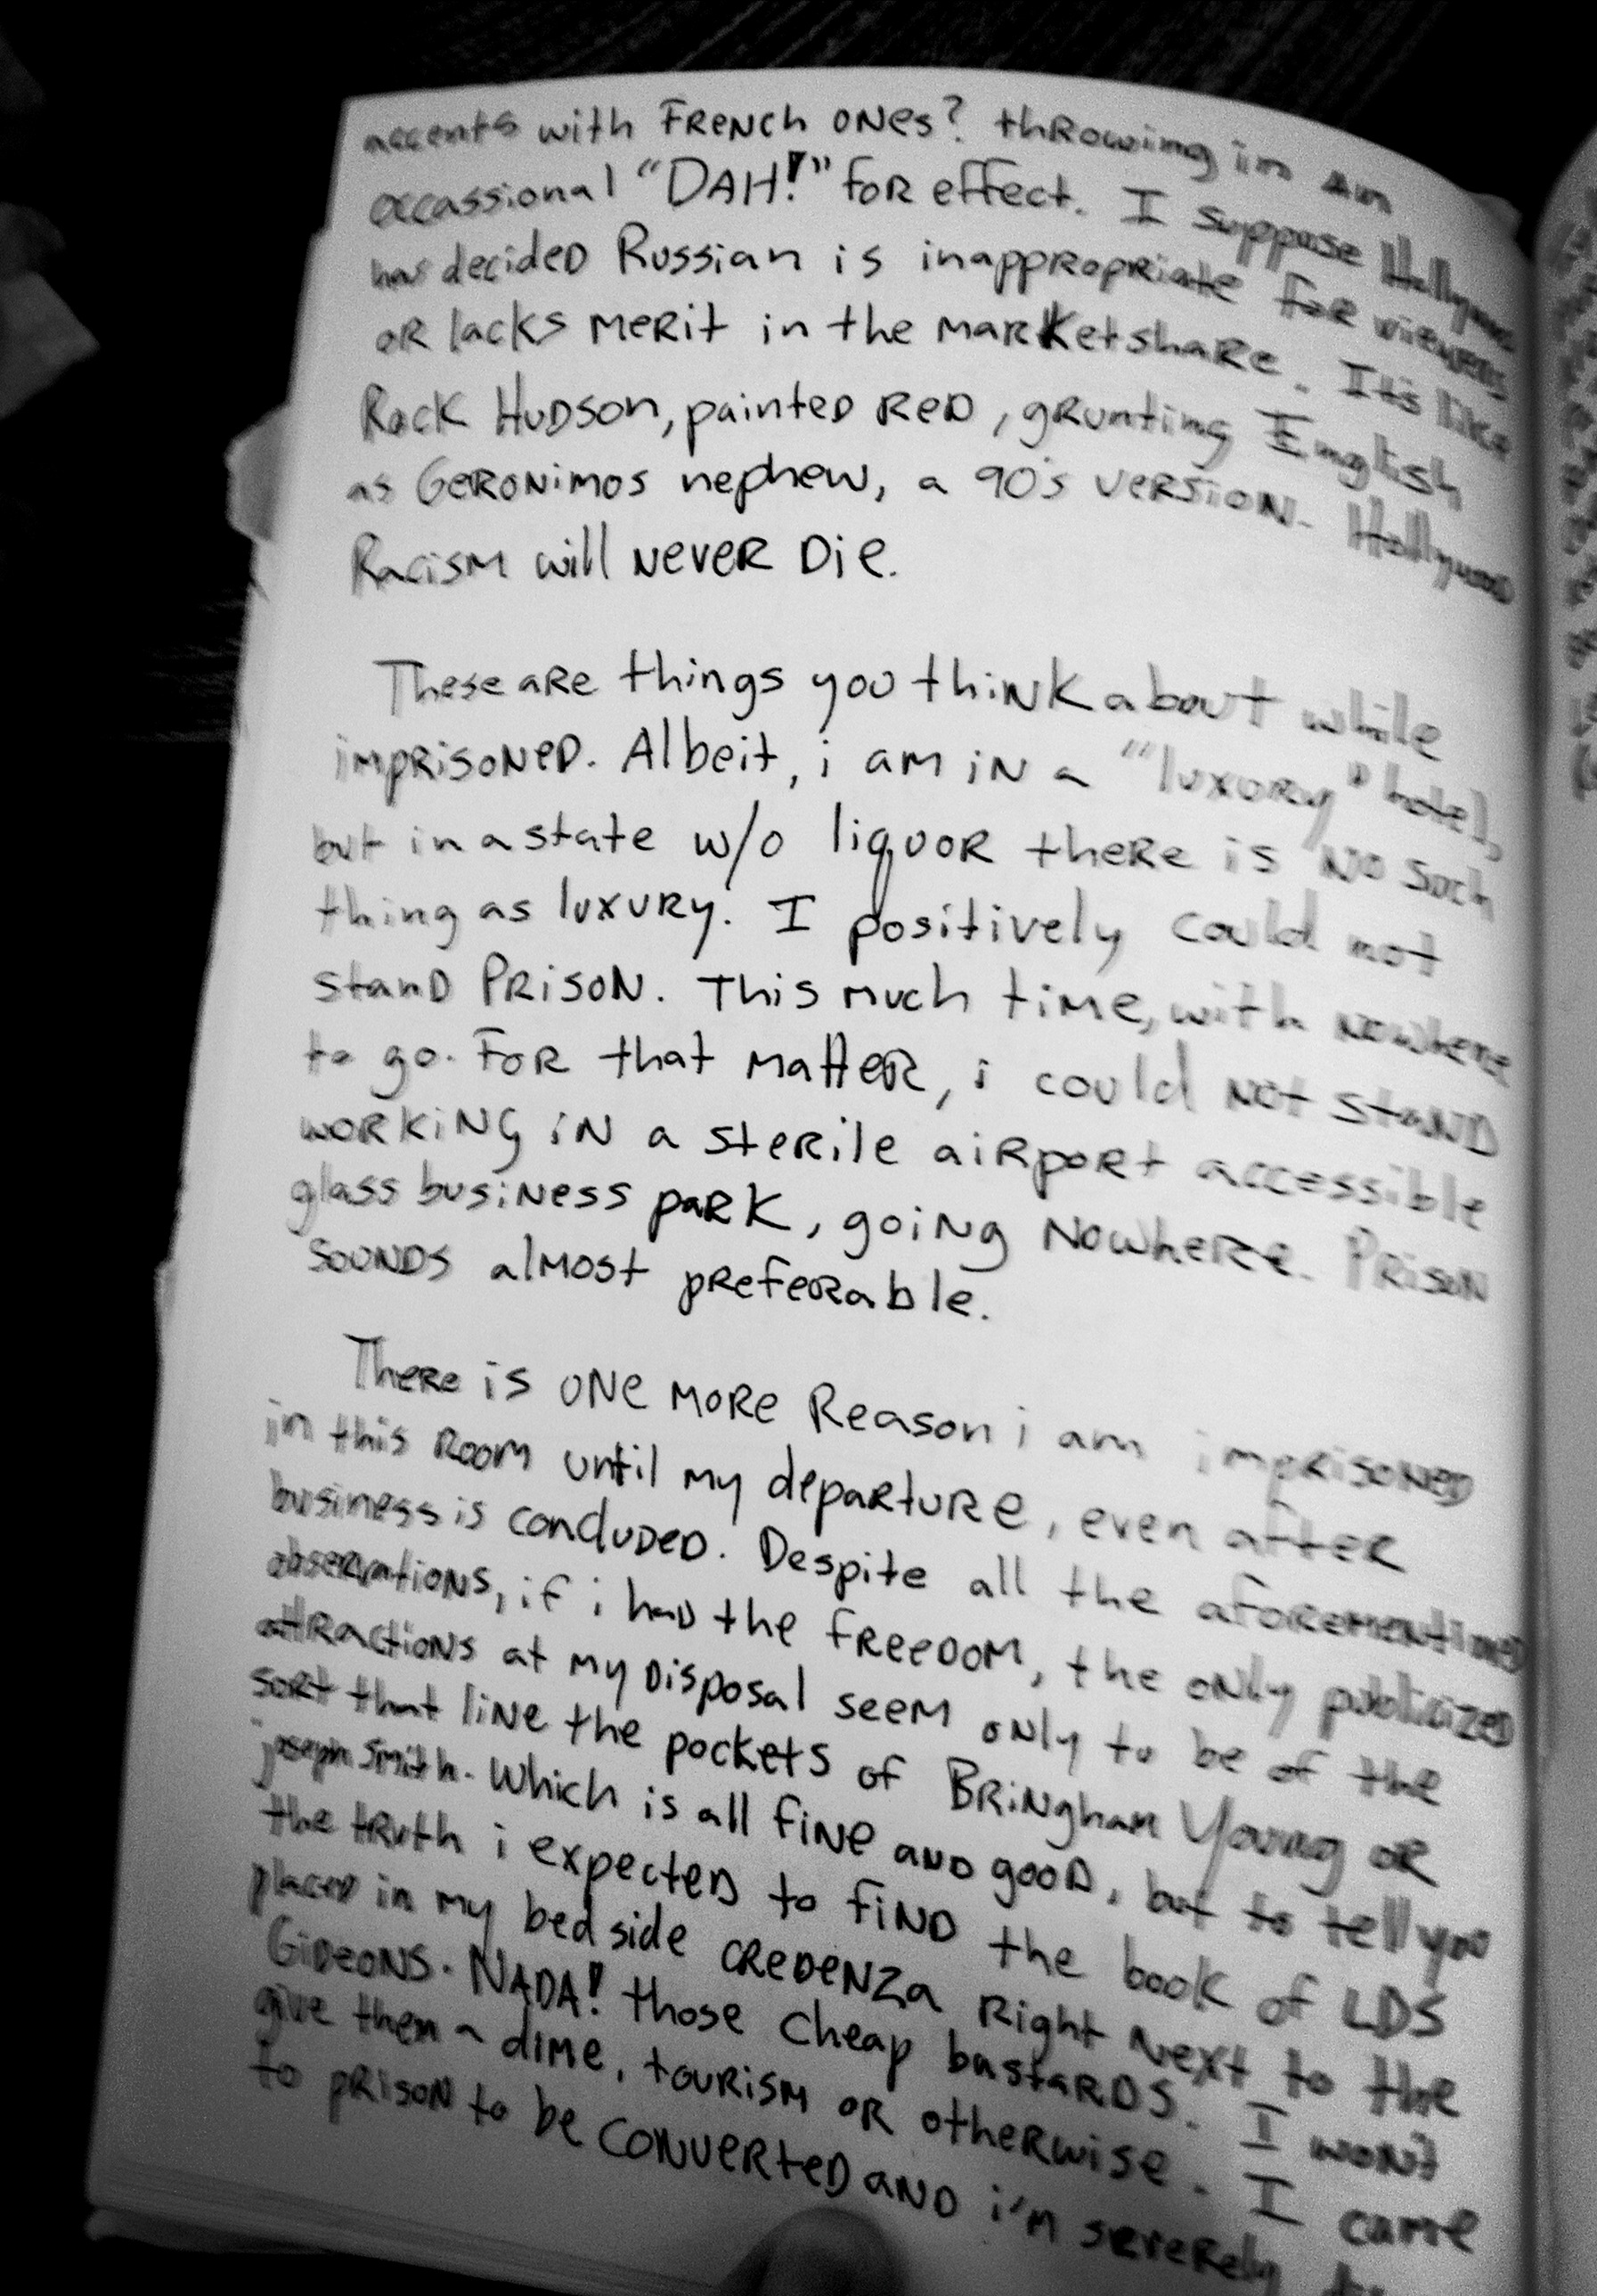 accents with FRENCH ONes? throwing in an
occassional "DAH!" for effect. I suppose Hollywood
has decided Russian is inappropriate for viewers
or lacks merit in the marketshare. It's like
Rock Hudson, painted red, grunting English
as Geronimos nephew, a 90's version. Hollywood
Racism will never die.
These are things you think about while
imprisoned. Albeit, i am in a "luxury" hotel,
but in a state w/o liquor there is no such
thing as luxury. I positively could not
stand Prison. This much time, with nowhere
to go. For that matter, i could not stand
working in a sterile airport accessible
glass business park, going nowhere. Prison
sounds almost preferable.
There is one more Reason i am imprisoned
in this room until my departure, even after
business is concluded. Despite all the aforementioned
observations, if i had the freedom, the only publicized
attractions at my disposal seem only to be of the
sort that line the pockets of Bringham Young or
joseph smith. Which is all fine and good, but to tell you
the truth i expected to find the book of LDS
placed in my bedside credenza right next to the
Gideons. NADA! those cheap bastards. I won't
give them a dime, tourism or otherwise. I came
to prison to be converted and i'm severely